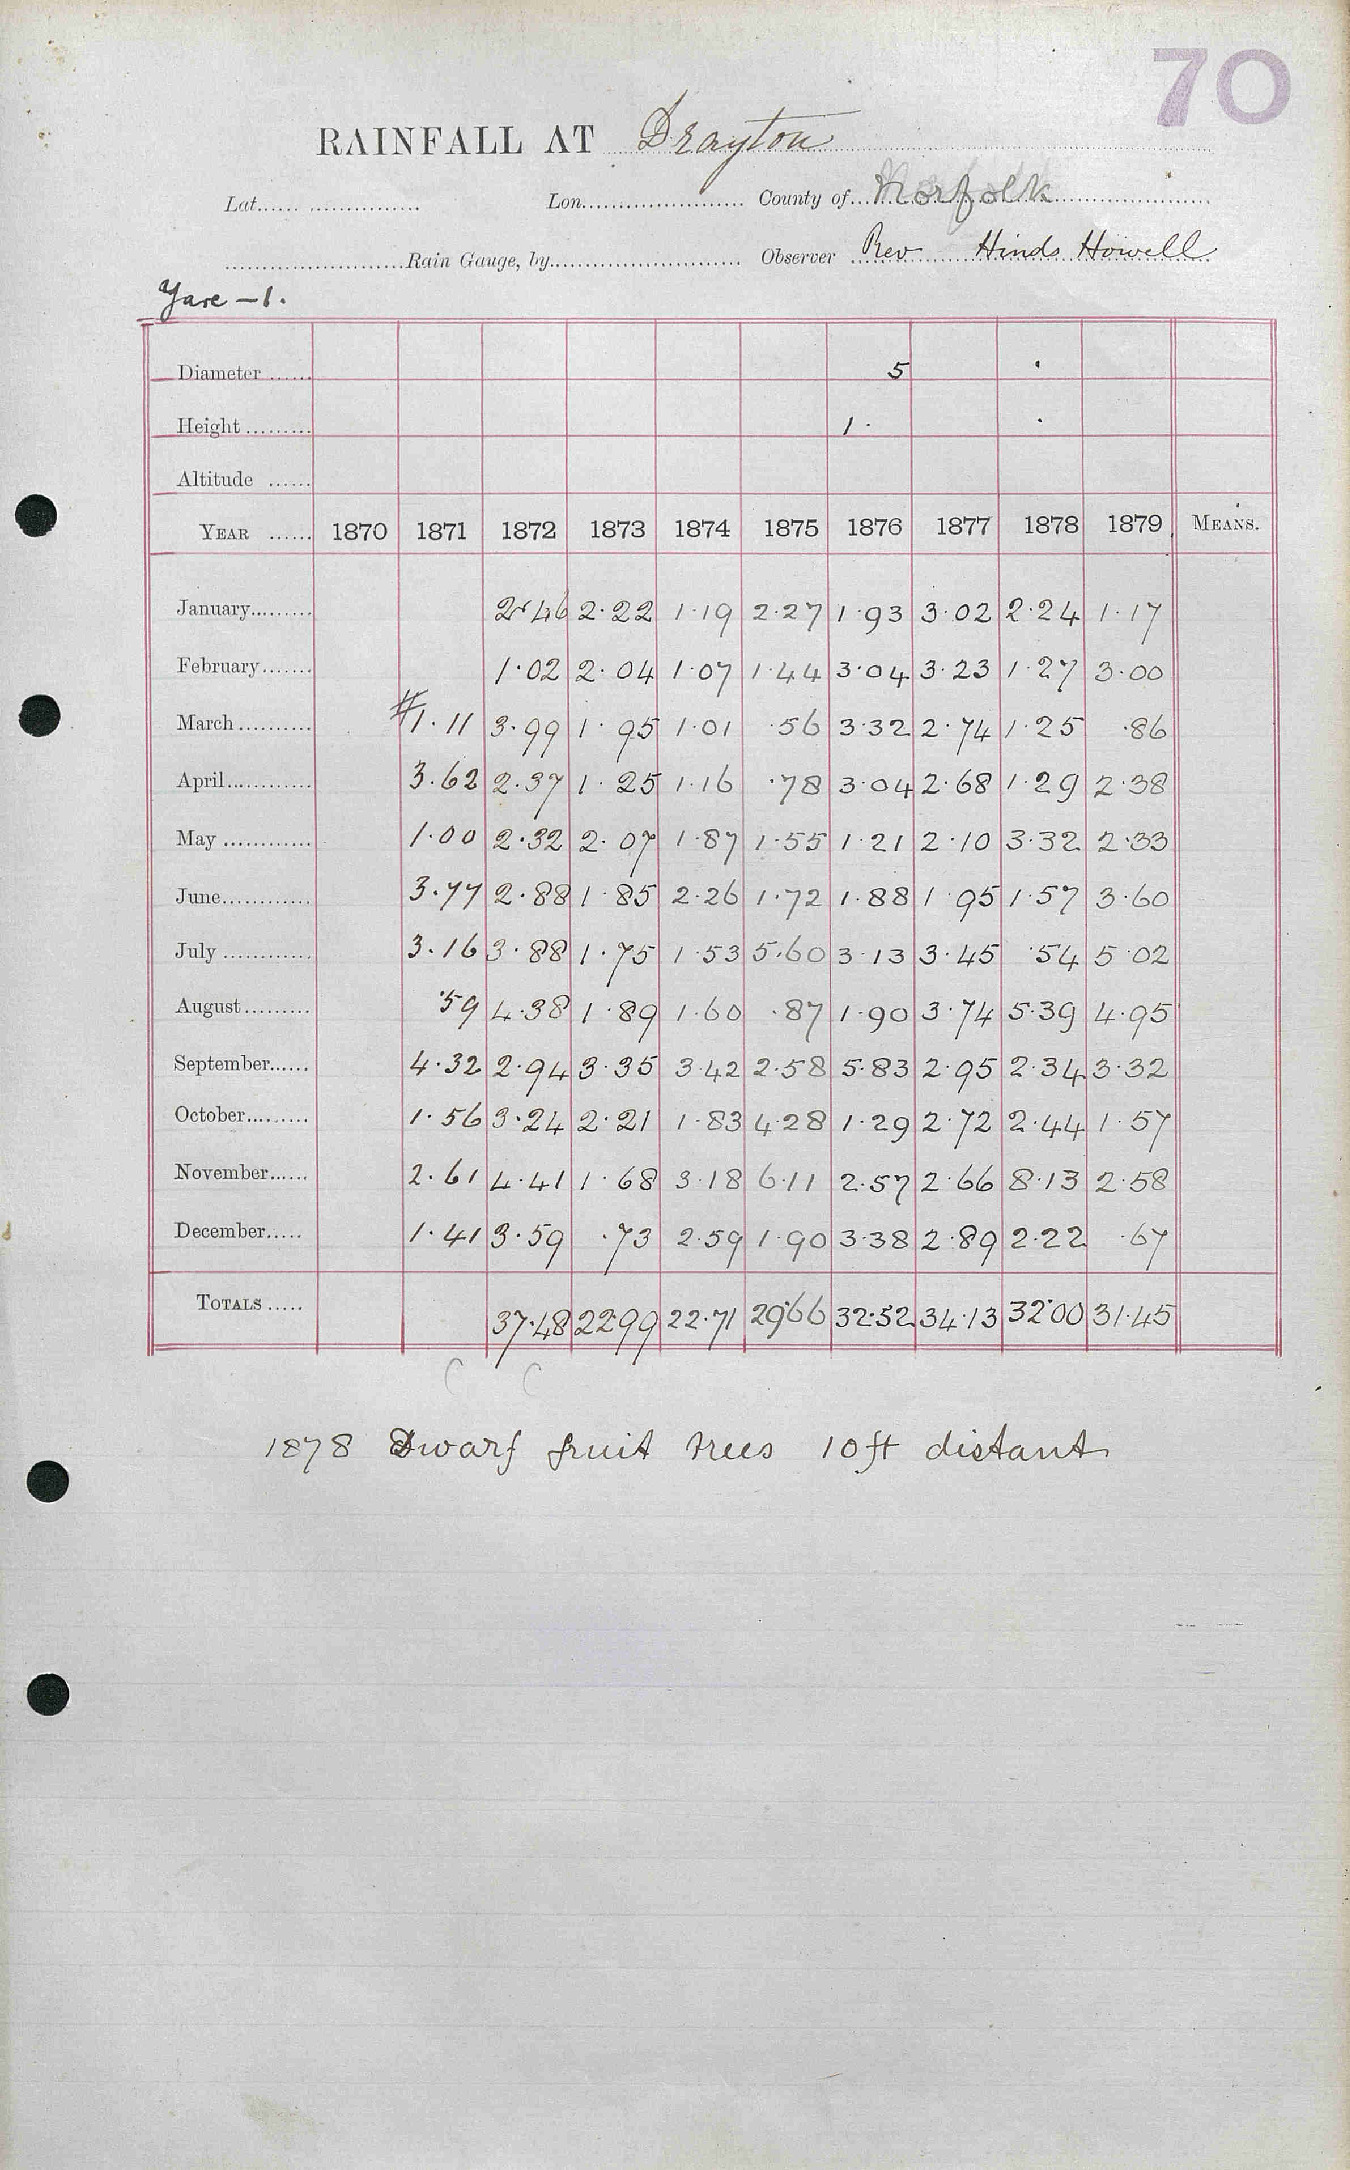 70
RAINFALL AT Drayton
Lat. Lon. County of Norfolk
Rain Gauge, by Observer Rev Hinds Howell
Yare - 1.
Diameter 5
Height 1 ·
Altitude
YEAR 1870 1871 1872 1873 1874 1875 1876 1877 1878 1879 MEANS.
January 2·46 2·22 1·19 2·27 1·93 3·02 2·24 1·17
February 1·02 2·04 1·07 1·44 3·04 3·23 1·27 3·00
March #1·11 3·99 1·95 1·01 ·56 3·32 2·74 1·25 ·86
April 3·62 2·37 1·25 1·16 ·78 3·04 2·68 1·29 2·38
May 1·00 2·32 2·07 1·87 1·55 1·21 2·10 3·32 2·33
June 3·77 2·88 1·85 2·26 1·72 1·88 1·95 1·57 3·60
July 3·16 3·88 1·75 1·53 5·60 3·13 3·45 ·54 5·02
August ·59 4·38 1·89 1·60 ·87 1·90 3·74 5·39 4·95
September 4·32 2·94 3·35 3·42 2·58 5·83 2·95 2·34 3·32
October 1·56 3·24 2·21 1·83 4·28 1·29 2·72 2·44 1·57
November 2·61 4·41 1·68 3·18 6·11 2·57 2·66 8·13 2·58
December 1·41 3·59 ·73 2·59 1·90 3·38 2·89 2·22 ·67
TOTALS 37·48 22·99 22·71 29·66 32·52 34·13 32·00 31·45
1878 Dwarf fruit trees 10ft distant